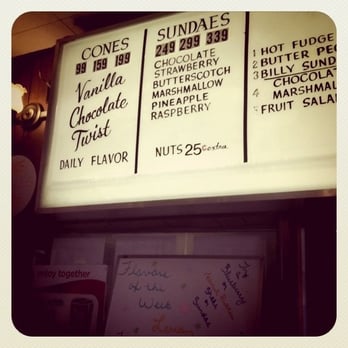 CONES
99 159 199
Vanilla
Chocolate
Twist
DAILY FLAVOR
SUNDAES
249 299 339
CHOCOLATE
STRAWBERRY
BUTTERSCOTCH
MARSHMALLOW
PINEAPPLE
RASPBERRY
NUTS 25¢ extra
1 HOT FUDGE
2 BUTTER PEC
3 BILLY SUND
CHOCOLA
4 MARSHMAL
5 FRUIT SALA
enjoy together
Flavors
of the
Week
Lemon
Try a
Blueberry
or
Shake
or
Sundae